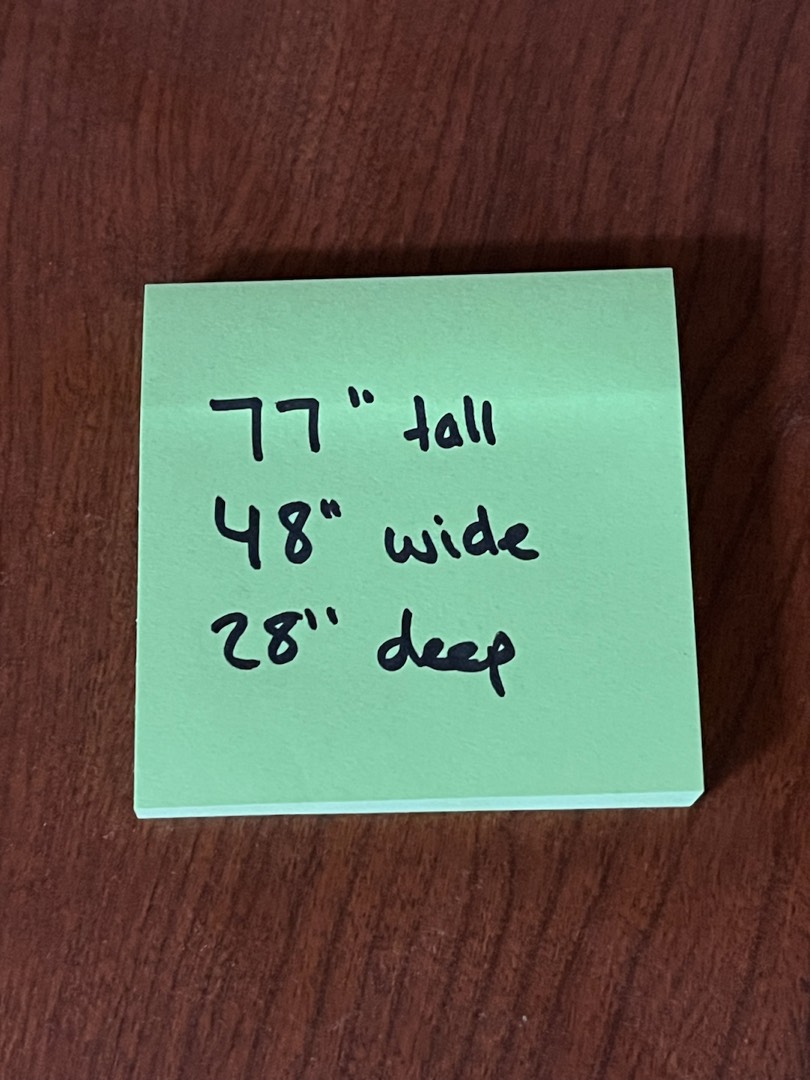 77" tall
48" wide
28" deep